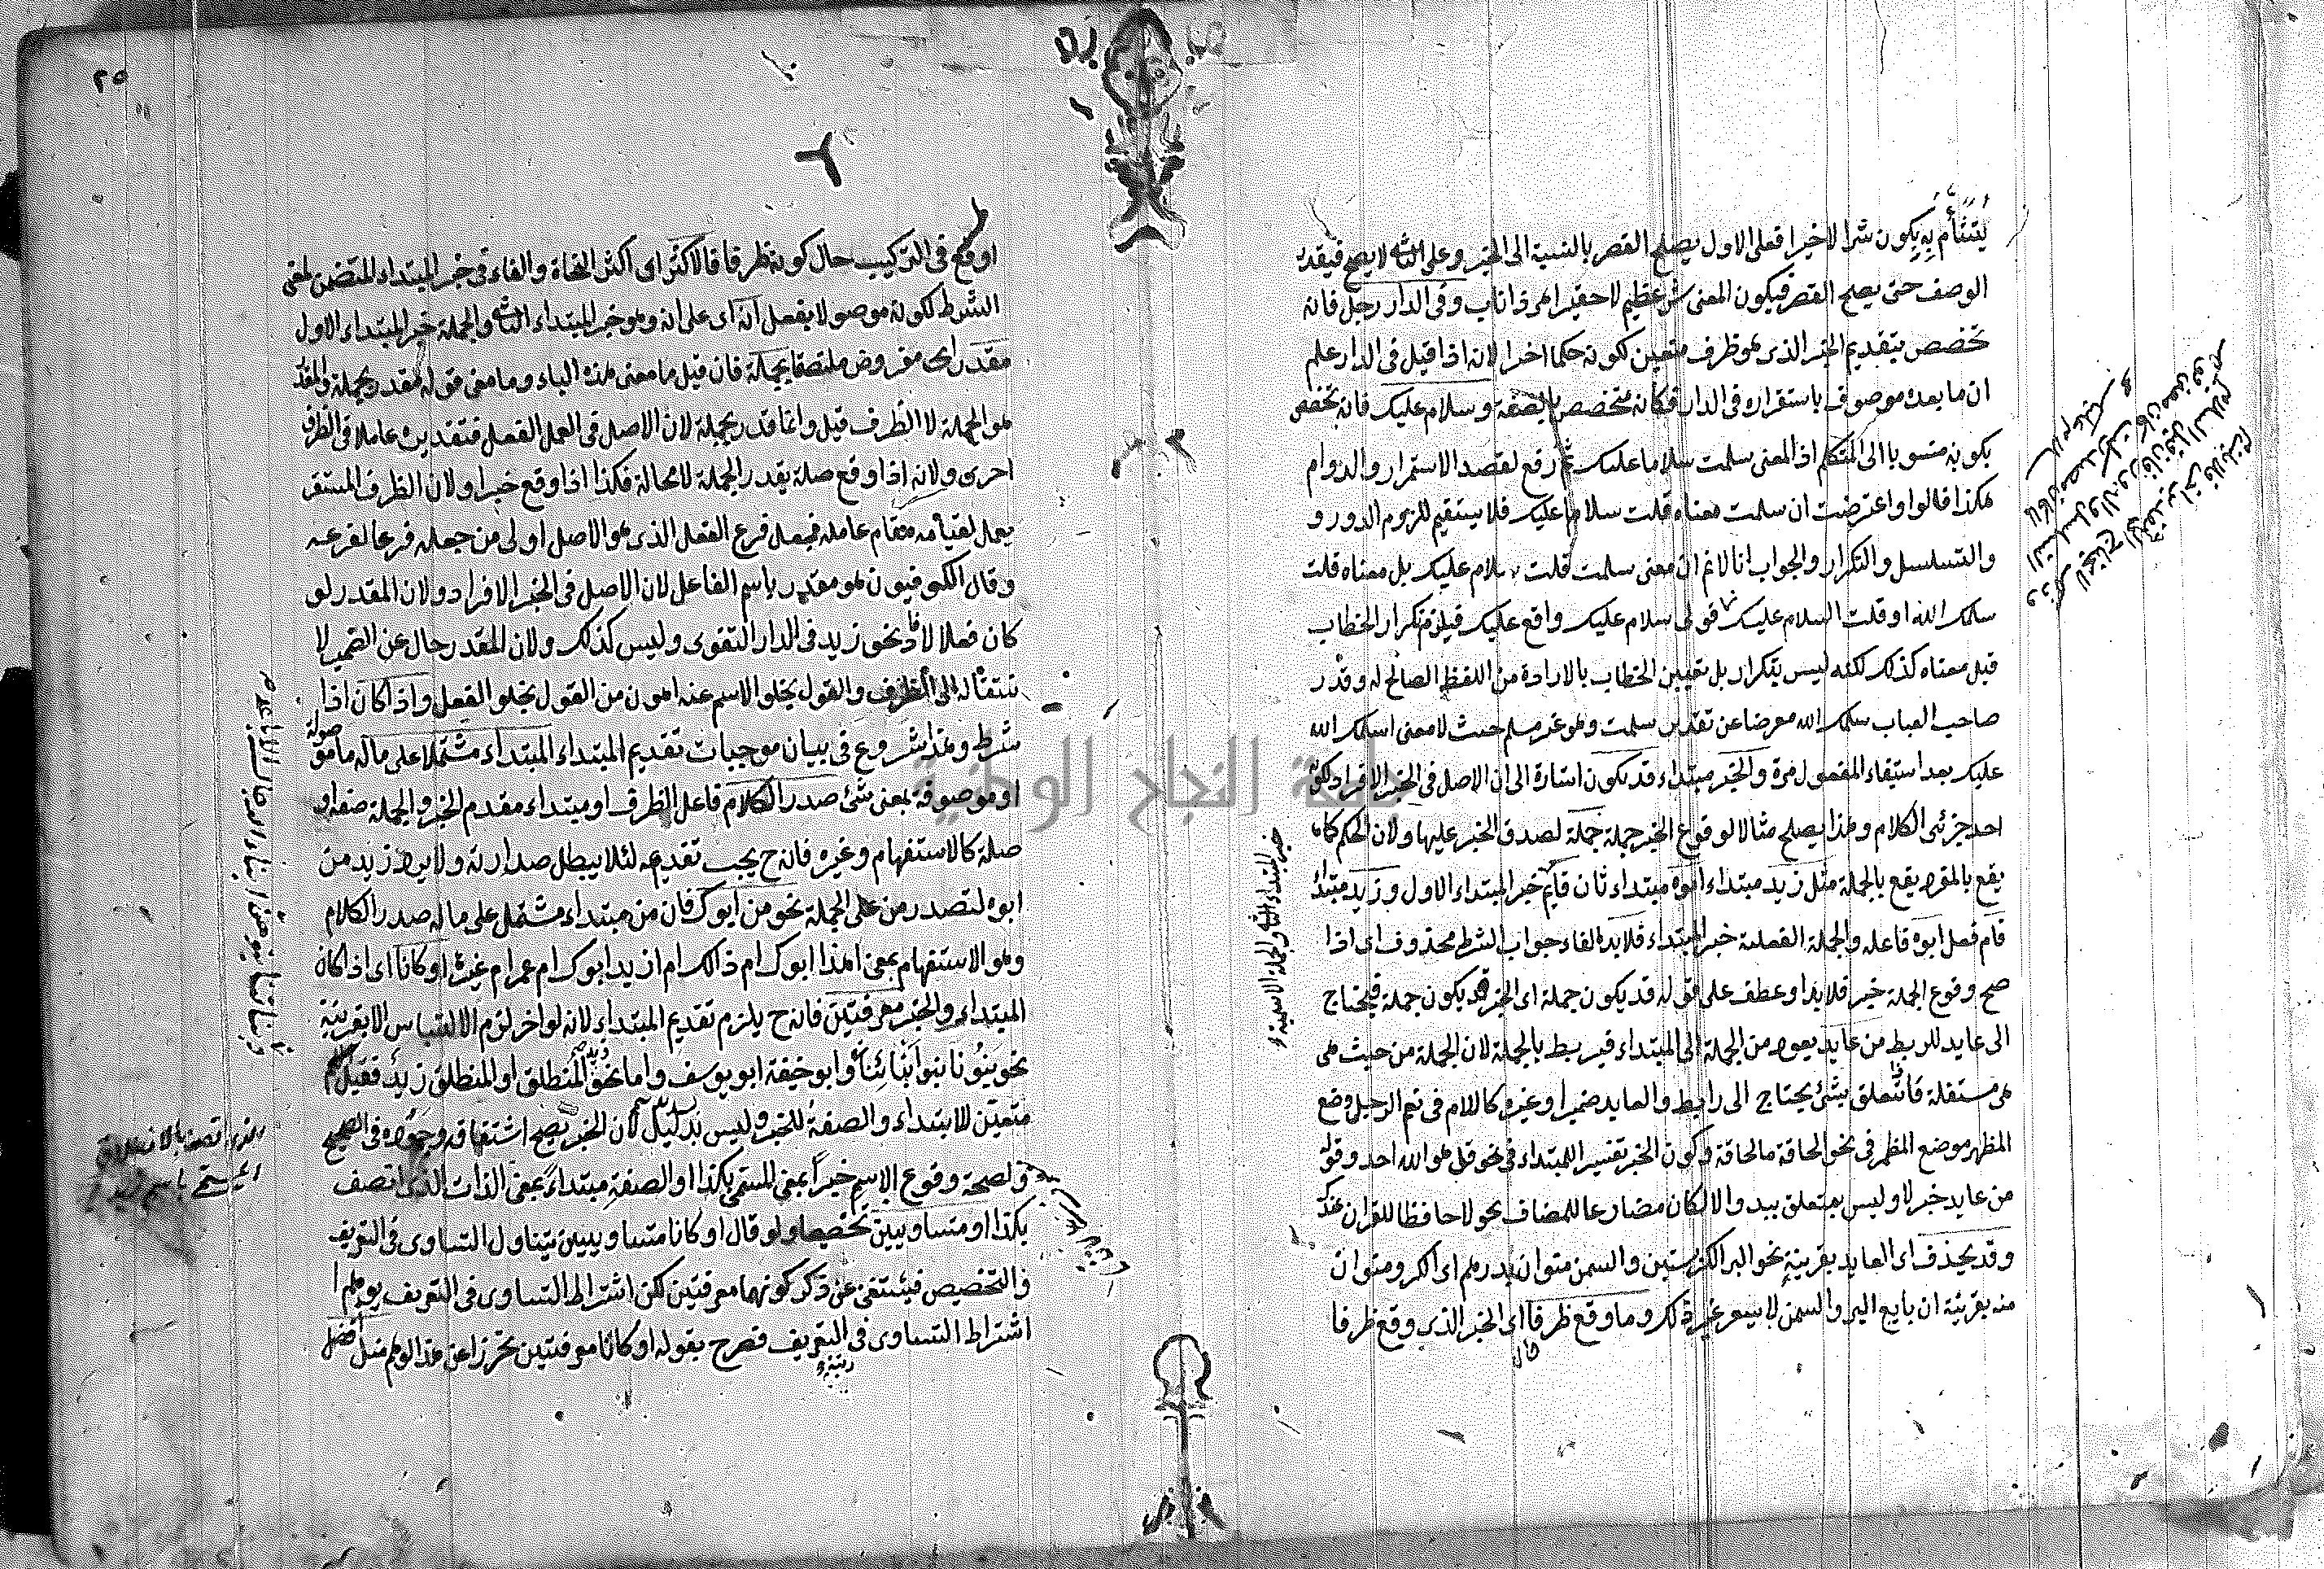 يتشأم به يكون شرا لا خيرا فعلى الاول يصلح القصر بالنسبة الى الخبر وعلى الثانى لا يصح فيقدر
الوصف حتى يصح القصر فيكون المعنى شر عظيم لا حقير اهر ذا ناب وفى الدار رجل فانه
تخصص بتقديم الخبر الذى هو ظرف متعين لكونه حكما اخرا لانه اذا قيل فى الدار علم
ان ما بعده موصوف باستقراره فى الدار فكانه متخصص بالصفة وسلام عليك فانه تخصص
بكونه منسوبا الى المتكلم اذ المعنى سلمت سلاما عليك ثم رفع لقصد الاستمرار والدوام
هكذا قالوا واعترضت ان سلمت معناه قلت سلام عليك فلا يستقيم للزوم الدور و
والتسلسل والتكرار والجواب انا لانم ان معنى سلمت قلت سلام عليك بل معناه قلت
سلمك الله او قلت السلام عليك فقولى سلام عليك واقع عليك قيلزم تكرار الخطاب
قبل معناه كذلك لكنه ليس بتكرار بل تعيين الخطاب بالارادة من اللفظ الصالح له وقدر
صاحب العباب سلمك الله معرضا عن تقدير سلمت وهو غير مسلم حيث لا معنى اسلمك الله
عليك بعد استيفاء المفعول مرة والخبر مبتداء قد يكون اشارة الى ان الاصل فى الخبر الافراد لكونه
احد جزئى الكلام ولهذا يصلح مثالا لو قوع الخبر جملة جملة لصدق الخبر عليها ولان الحكم كما
يقع بالمفرد يقع بالجملة مثل زيد مبتداء ابوه مبتداء ثان قايم خبر المبتداء الاول وزيد مبتداء
قام فعل ابوه فاعله والجملة الفعلية خبر المبتداء فلا بد الفاء جواب الشرط محذوف اى اذا
صح وقوع الجملة خبر فلا بد او عطف على قوله قد يكون جملة اى الخبر قد يكون جملة فيحتاج
الى عايد للربط من عايد يعود من الجملة الى المبتداء فيربط بالجملة لان الجملة من حيث هى
هى مستقلة فاذا تعلق بشئ يحتاج الى رابط والعايد ضمير او غيره كاللام فى نعم الرجل وضع
المظهر موضع المظمر فى نحو الحاقة ما الحاقة وكون الخبر تفسيرا للمبتداء فى نحو قل هو الله احد وقوله
من عايد خبر لا وليس بمتعلق ببد والا لكان مضارعا للمضاف نحو لا حافظا للقران عندك
وقد يحذف اى العايد بقرينة نحو البر الكر بستين والسمن منوان بدرهم اى الكر ومنوان
منه بقرينة ان بايع البر والسمن لا يسعر غير ذلك وما وقع ظرفا اى الخبر الذى وقع ظرفا
خبر المبتداء الثانى والجملة الاسمية
٢٥
او وقع فى التركيب حال كونه ظرفا فالاكثر اى اكثر النحاة والفاء فى خبر المبتداء المتضمن لمعنى
الشرط لكونه موصولا بفعل انه اى على انه وهو خبر المبتداء الثانى والجملة خبر المبتداء الاول
مقدر اى مفروض ملتصقا بجملة فان قيل ما معنى هذه الباء وما معنى قوله مقدر بجملة والمقدر
هو الجملة لا الظرف قيل وانما قدر بجملة لان الاصل فى العمل الفعل فتقديره عاملا فى الظرف
احرى ولانه اذا وقع صلة يقدر الجملة لا محالة فكذا اذا وقع خبرا ولان الظرف المستقر
يعمل لقيامه مقام عامله فجعل فرع الفعل الذى هو الاصل اولى من جعله فرعا لفرعه
وقال الكوفيون هو مقدر باسم الفاعل لان الاصل فى الخبر الافراد ولان المقدر لو
كان فعلا لافاد نحو زيد فى الدار التقوى وليس كذلك ولان المقدر حال عن الضمير لا
نتقاله الى الظرف والقول بخلو الاسم عنه اهون من القول بخلو الفعل واذا كان اذا
شرط وهذا شروع فى بيان موجبات تقديم المبتداء المبتداء مشتملا على ماله ما موصولة
او موصوفة بمعنى شئ صدر الكلام فاعل الظرف او مبتداء مقدم الخبر والجملة صفة او
صلة كالاستفهام وغيره فانه ح يجب تقديمه لئلا يبطل صدارته ولا يرد زيد من
ابوه لتصدر من على الجملة نحو من ابوك فان من مبتداء مشتمل على ماله صدر الكلام
وهو الاستفهام بمعنى اهذا ابوك ام ذاك ام ازيد ابوك ام عمرو ام غيره او كانا اى اذا كان
المبتداء والخبر معرفتين فانه ح يلزم تقديم المبتداء لانه لو اخر لزم الالتباس الا بقرينة
نحو بنونا بنوا ابنائنا وابو حنيفة ابو يوسف واما نحو زيد المنطلق او المنطلق زيد فقيل الاسم
متعين للابتداء والصفة للخبر وليس بدليل لان الخبر يصح اشتقاقه وجموده فى الصحيح
ولصحة وقوع الاسم خبرا بمعنى المسمى بكذا او الصفة مبتداء بمعنى الذات الذى اتصف
بكذا او متساويين تخصيصا ولو قال او كانا متساويين يتناول التساوى فى التعريف
والتخصيص فيستغنى عن ذكر كونهما معرفتين لكن اشتراط التساوى فى التعريف يوهم ا
اشتراط التساوى فى التعريف فصرح بقوله او كانا معرفتين تحرزا عن هذا الوهم مثل افضل
وبناتنا بنوهن ابناء الرجال الاباعد
جامعة النجاح الوطنية